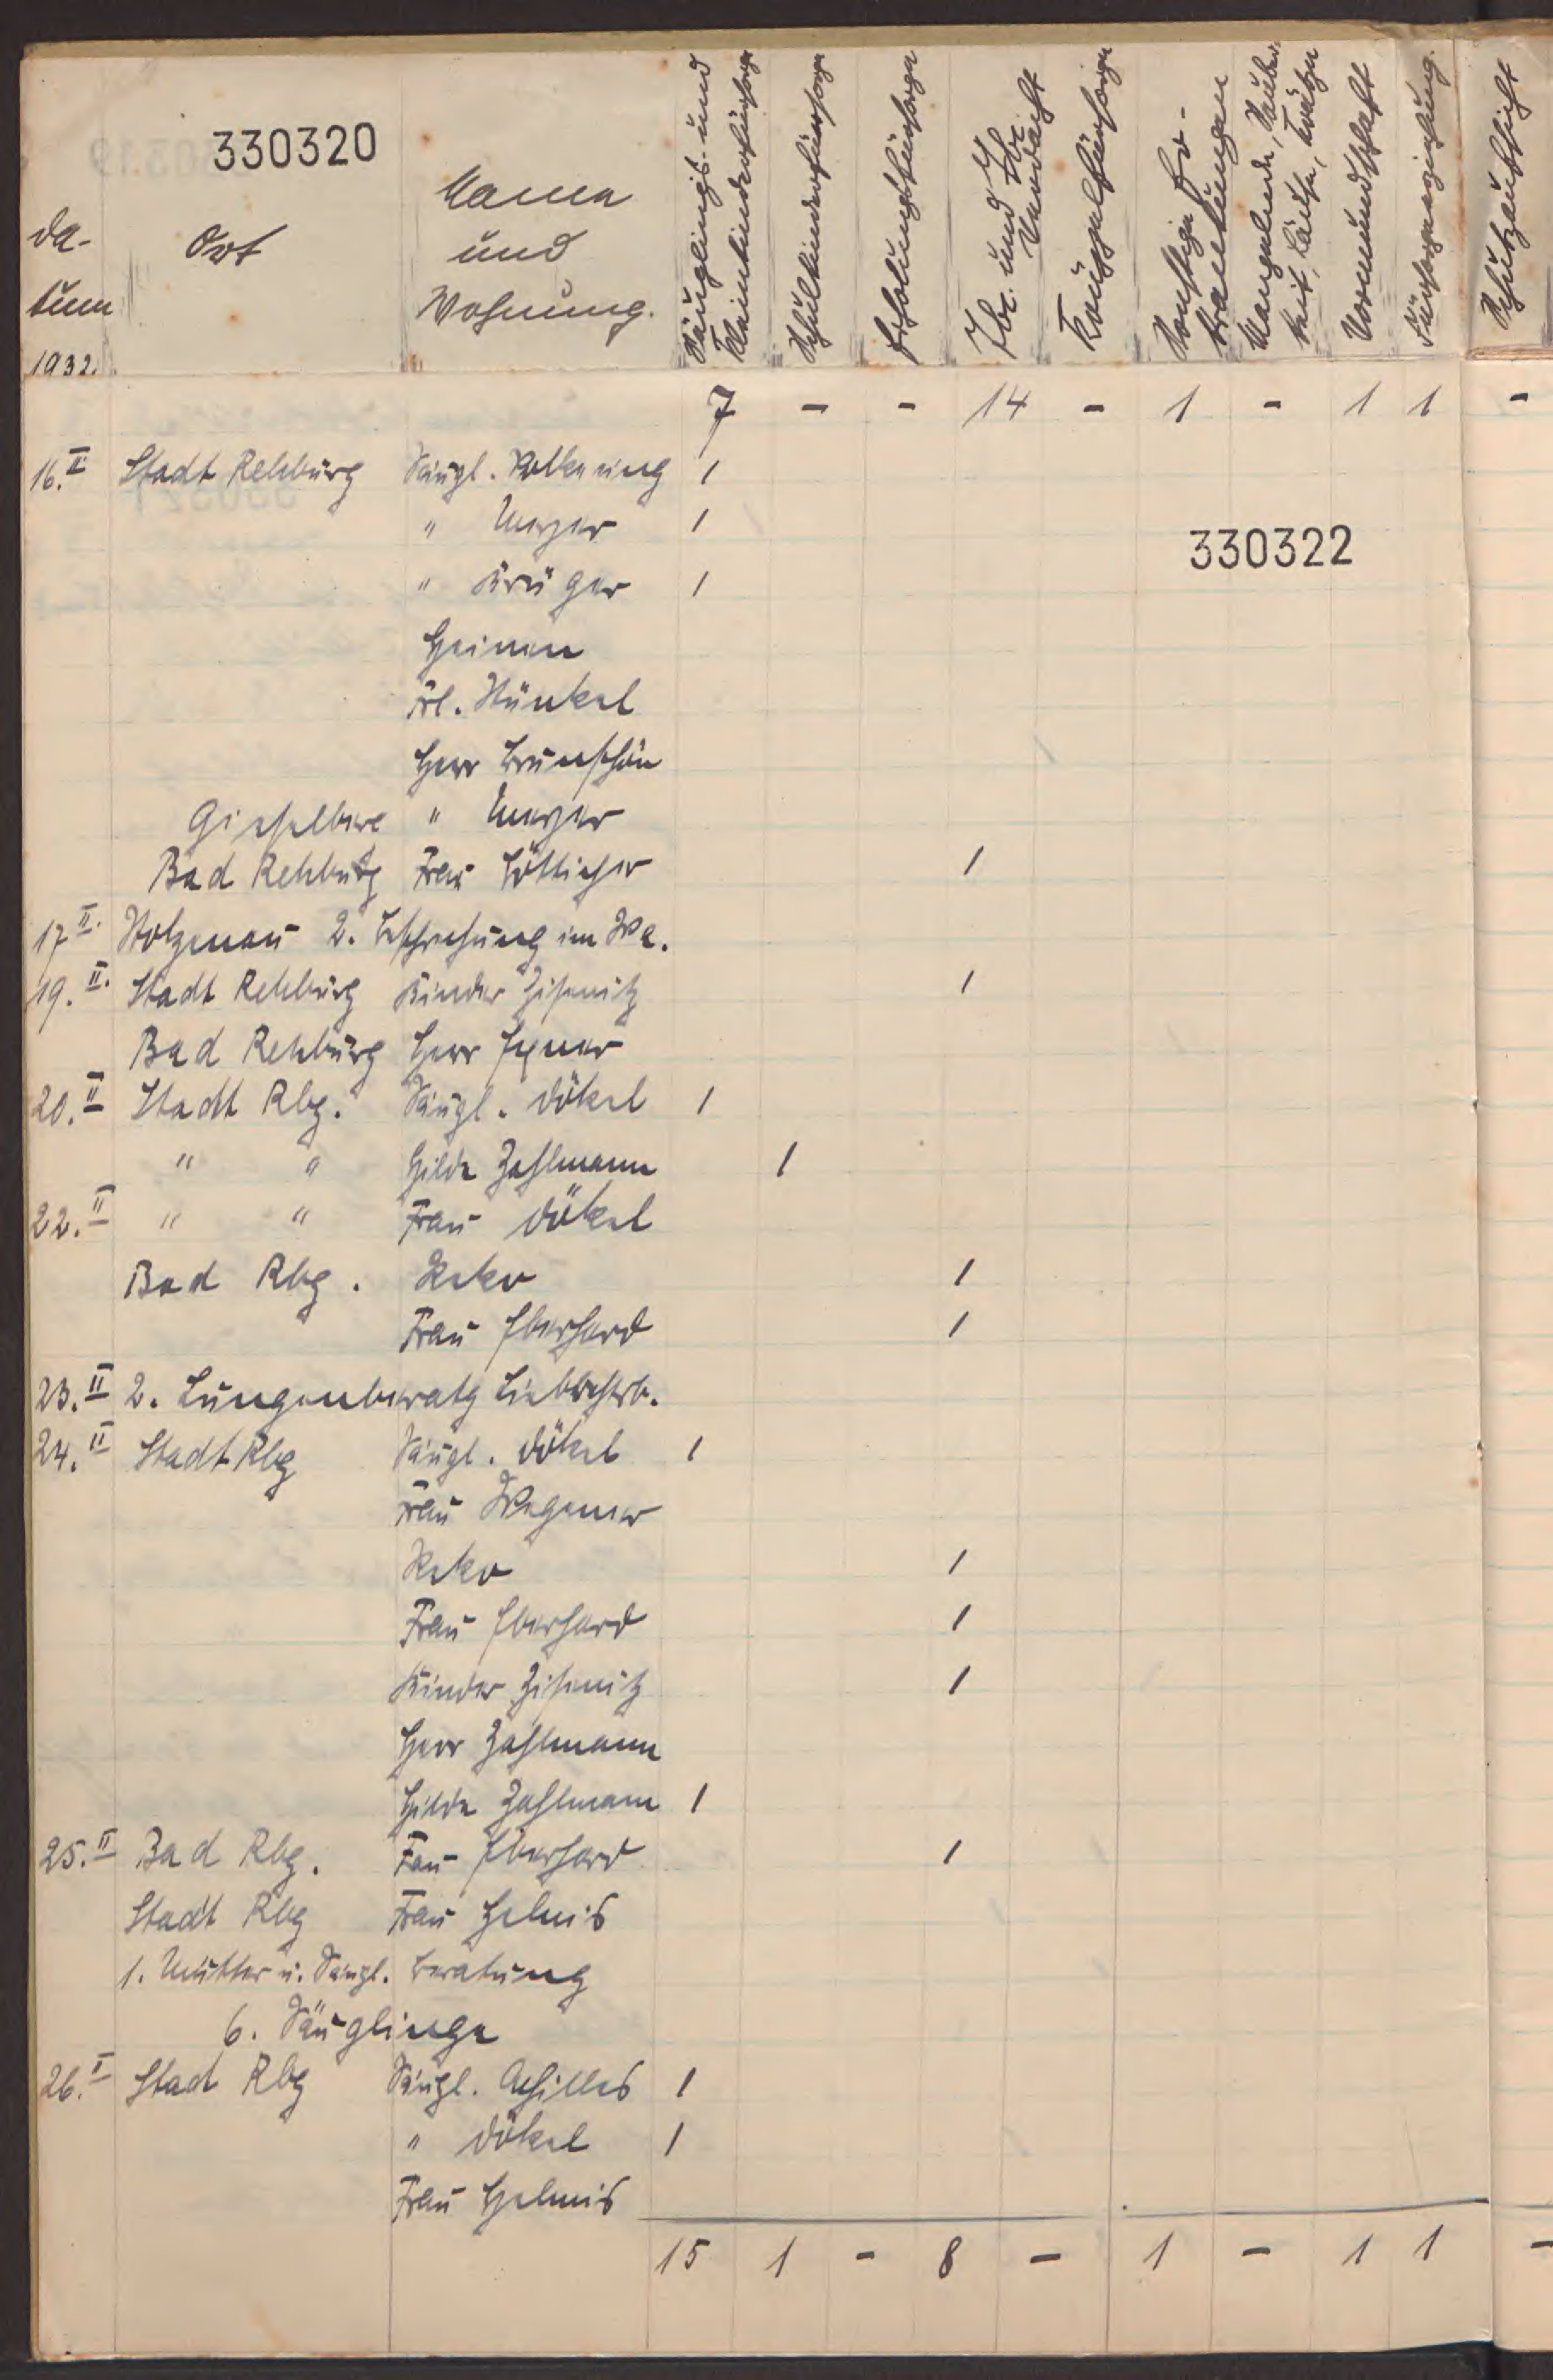 330320
Da-
tum
1932.
Ort
Name
und
Wohnung.
Säuglings- und
Kleinkinderfürsorge
Schulkinderfürsorge
Erholungsfürsorge
Tbc. und Tbc.
Verdacht
Krüppelfürsorge
Sonstige Er-
krankungen
Mangelnde Sauber-
keit, Läuse, Krätze
Vormundschaft
Fürsorgeerziehung.
Schutzaufsicht
7 - - 14 - 1 - 1 1 -
16. II Stadt Rehburg Säugl. Volkening 1
" Meyer 1
330322
" Krüger 1
Heimen
Frl. Künkel
Herr Brunschön
Giesselhre " Meyer
Bad Rehburg Frau Böttcher 1
17 II. Stolzenau 2. Besprechung im Wa.
19. II. Stadt Rehburg Kinder Zisenitz 1
Bad Rehburg Herr Exner
20. II Stadt Rbg. Säugl. Dökel 1
" " Hilde Zahlmann 1
22. II " " Frau Dökel
Bad Rbg. Keko 1
Frau Eberhard 1
23. II 2. Lungenberatg
24. II Stadt Rbg Säugl. Dökel 1
Frau Wegener
Keko 1
Frau Eberhard 1
Kinder Zisenitz 1
Herr Zahlmann
Hilde Zahlmann 1
25. II Bad Rbg. Frau Eberhard 1
Stadt Rbg Frau Helmis
1. Mütter u. Säugl. beratung
6. Säuglinge
26. II Stad Rbg Säugl. Achilles 1
" Dökel 1
Frau Helmis
15 1 - 8 - 1 - 1 1 -